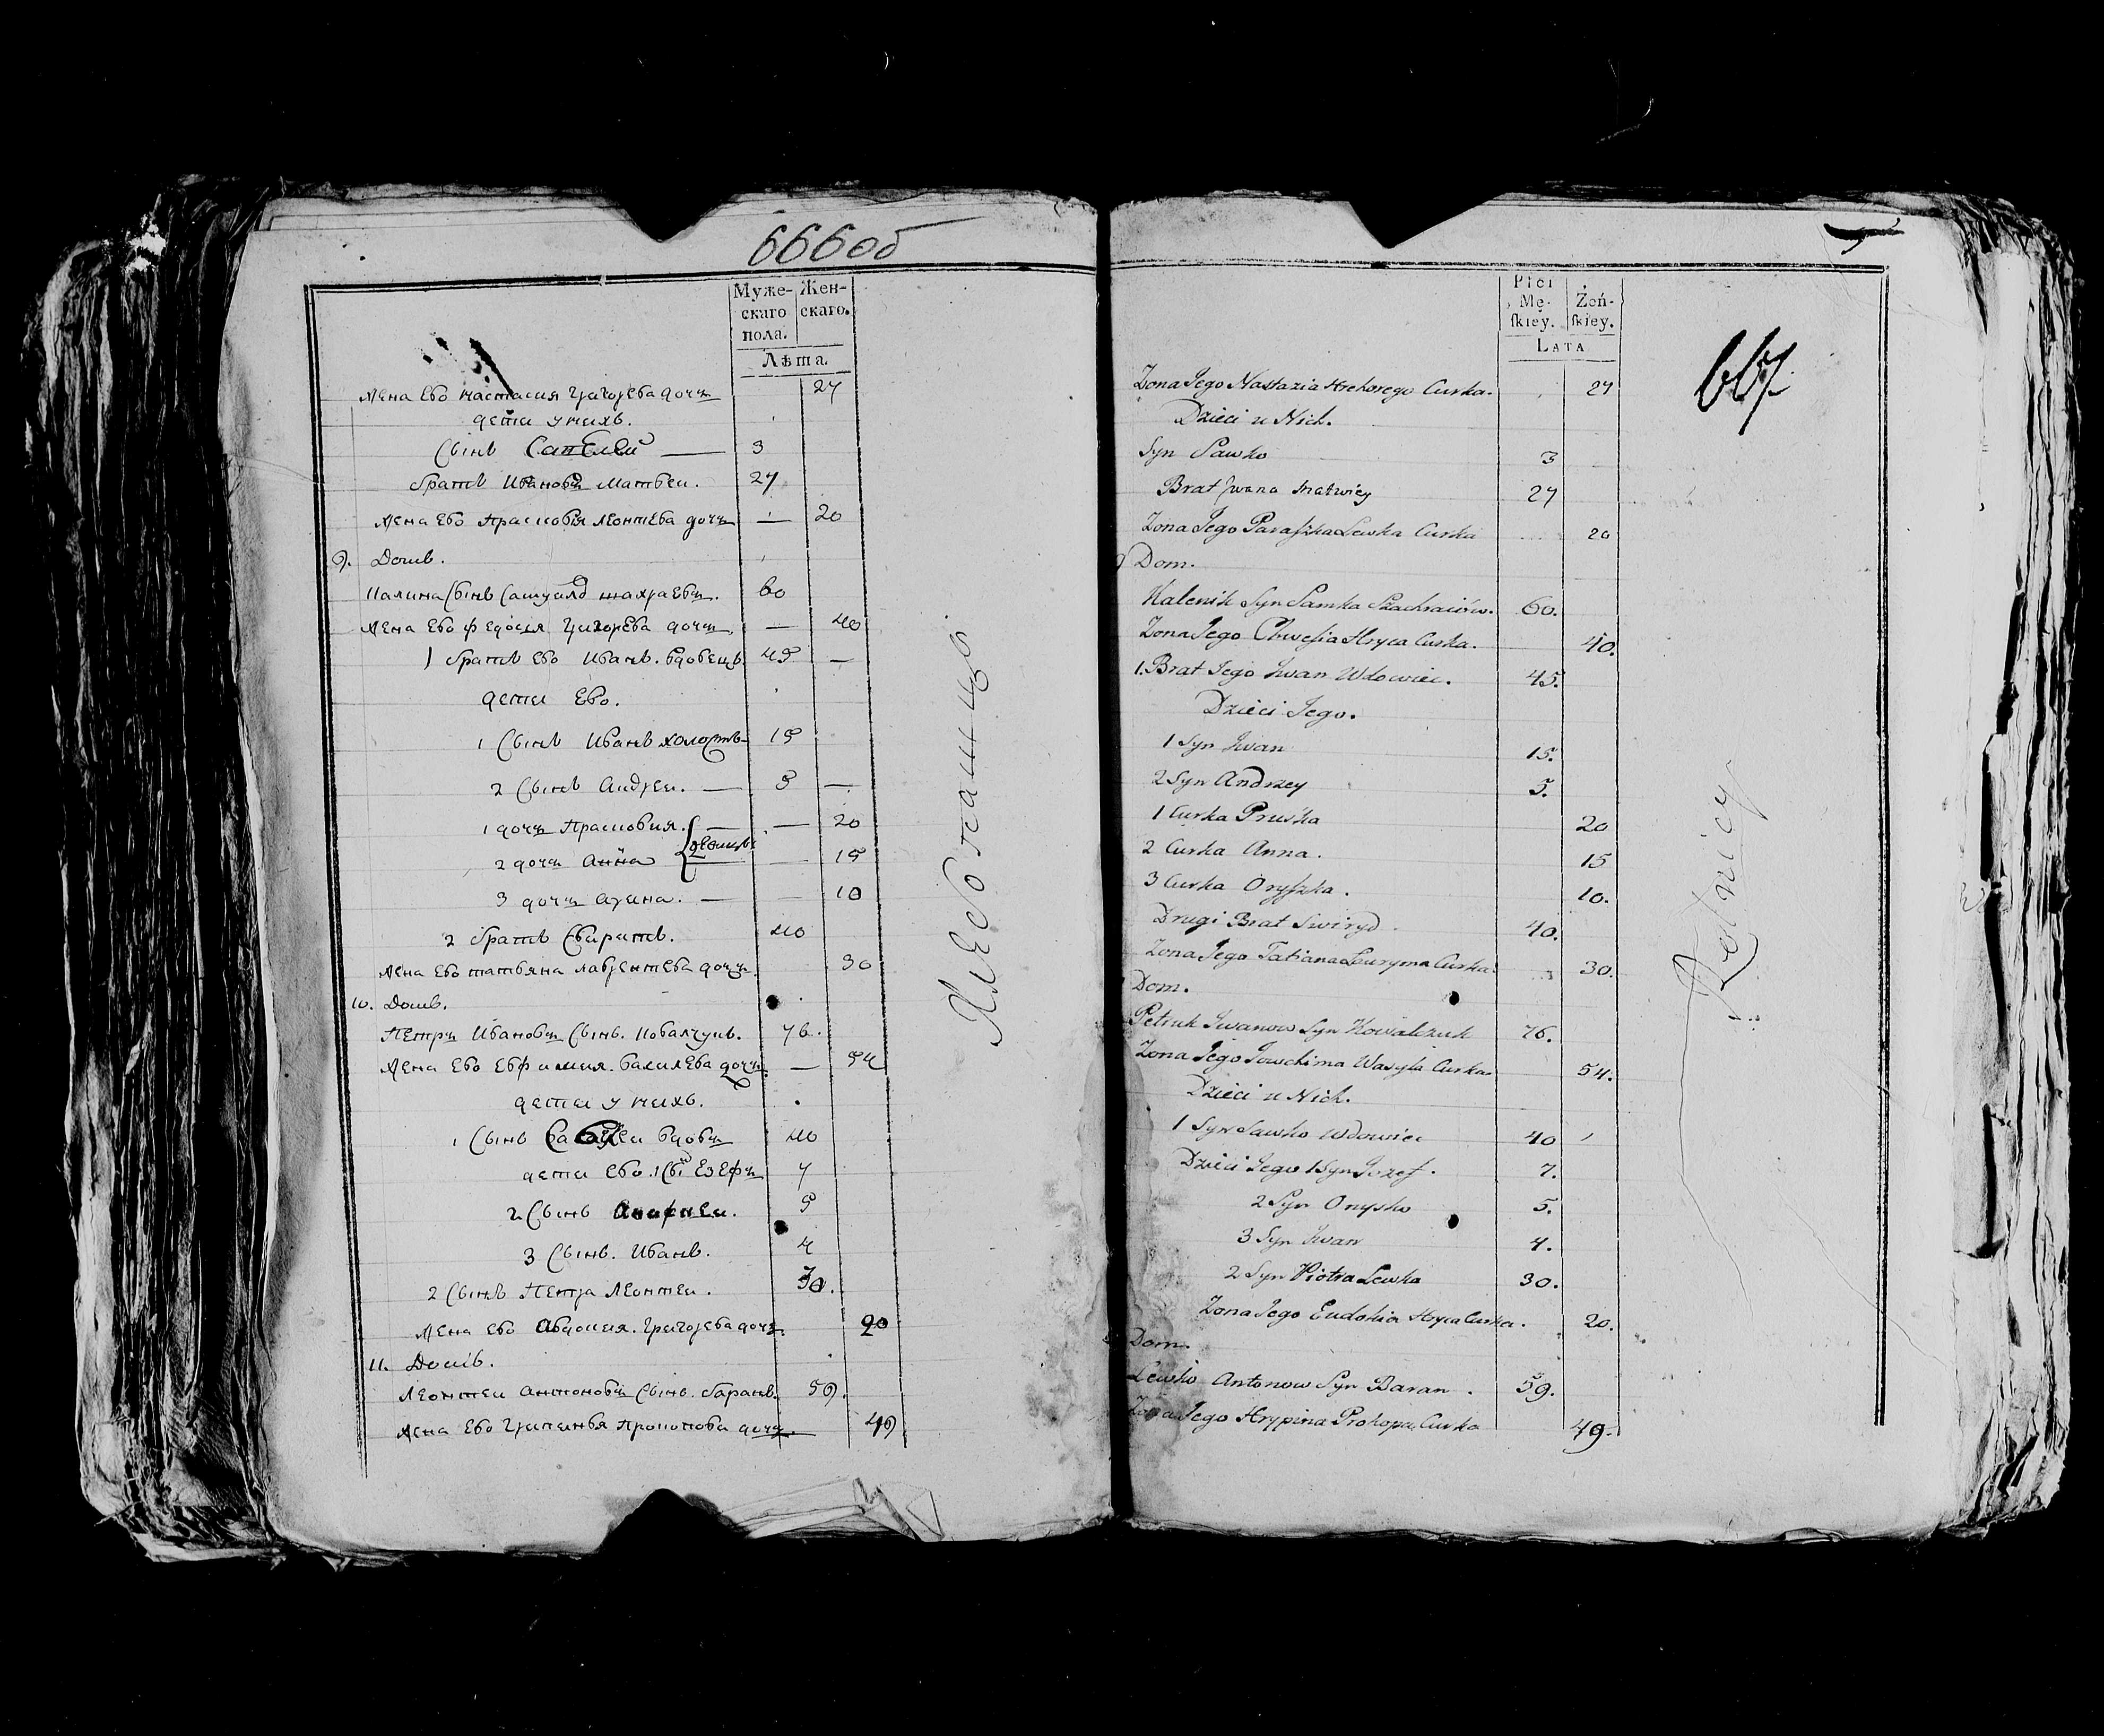 666об
Муже-
скаго
пола.
Жен-
скаго.
Лѣта
жена ево настасия григорева дочь 27
дети у нихъ.
сынъ Савелей — 3
братъ Ивановъ Матвеи. 27
жена ево Прасковя леонтева дочь — 20
9. Домъ.
Калина сынъ самуилъ шахраевъ. 60
жена ево федосия григорева дочь — 40
1 братъ ево Иванъ. вдовецъ. 45 —
дети ево.
1 сынъ Иванъ холостъ 15
2 сынъ Андреи. — 5 —
1 дочь Прасковия. — — 20
2 дочь Анна девицы — 15
3 дочь арина. — — 10
2 братъ свиридъ. 40
жена ево татьяна лаврентева дочь. 30
10. Домъ.
Петръ Ивановъ сынъ. ковалчукъ. 76.
жена ево евфимия. василева дочь. — 54
дети у нихъ.
1 сынъ Савелеи вдовъ 40
дети ево. 1 сынъ Езефъ 7
2 сынъ Анифреи. 5
3 сынъ. Иванъ. 4
2 сынъ Петра леонтеи. 30.
жена ево авдокия. григорева дочь. 20
11. Домъ.
леонтеи антоновъ сынъ. баранъ. 59.
жена ево грипинья прокопова дочь. 49
Хлебопашцы
Płci
Mę-
skiey.
Żeń-
skiey.
LATA
667
Żona Jego Nastazia Hrehorego Curka. 27
Dzieci u Nich.
Syn Sawko 3
Brat Jwana Matwiey 27
Żona Jego Paraszka Lewka Curka 20
9 Dom.
Kalenik Syn Samka Szachraiów. 60.
Żona Jego Chwesia Hryca Curka. 40.
1. Brat Jego Jwan Wdowiec. 45.
Dzieci Jego.
1 Syn Jwan 15.
2 Syn Andrzey 5.
1 Curka Pruska 20
2 Curka Anna. 15
3 Curka Oryszka. 10.
Drugi Brat Swiryd 40.
Żona Jego Tatiana Lauryna Curka. 30.
Dom.
Petruk Jwanow Syn Kowalczuk 76.
Żona Jego Jowchima Wasyla Curka. 54.
Dzieci u Nich.
1 Syn Sawko Wdowiec 40
Dzieci Jego 1 Syn Jozef. 7.
2 Syn Onysko 5.
3 Syn Jwan 4.
2 Syn Piotra Lewka 30.
Żona Jego Eudokia Hryca Curka. 20.
Dom.
Lewko Antonow Syn Baran. 59.
Żona Jego Hrypina Prokopa Curka 49.
Rolnicy